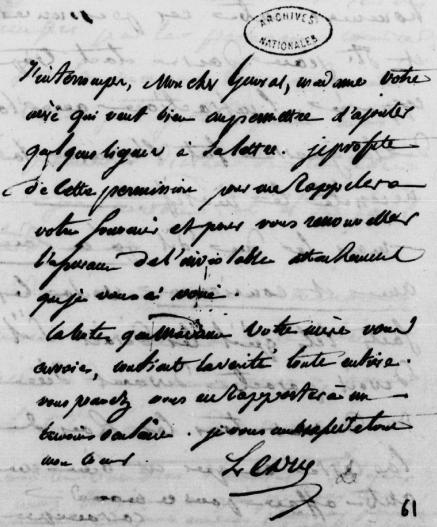 ARCHIVES NATIONALES
J'interromps, Mon cher General, madame votre
mère qui veut bien me permettre d'ajouter
quelques lignes à sa lettre. je profite
de cette permission pour me Rappeler a
votre souvenir et pour vous renouveller
l'assurance de l'inviolable attachement
que je vous ai voué.
la lettre que Madame votre mère vous
envoie, contient la verité toute entiere.
vous pouvez vous en Rapporter à un
temoin oculaire. je vous embrasse de tout
mon cœur.
61